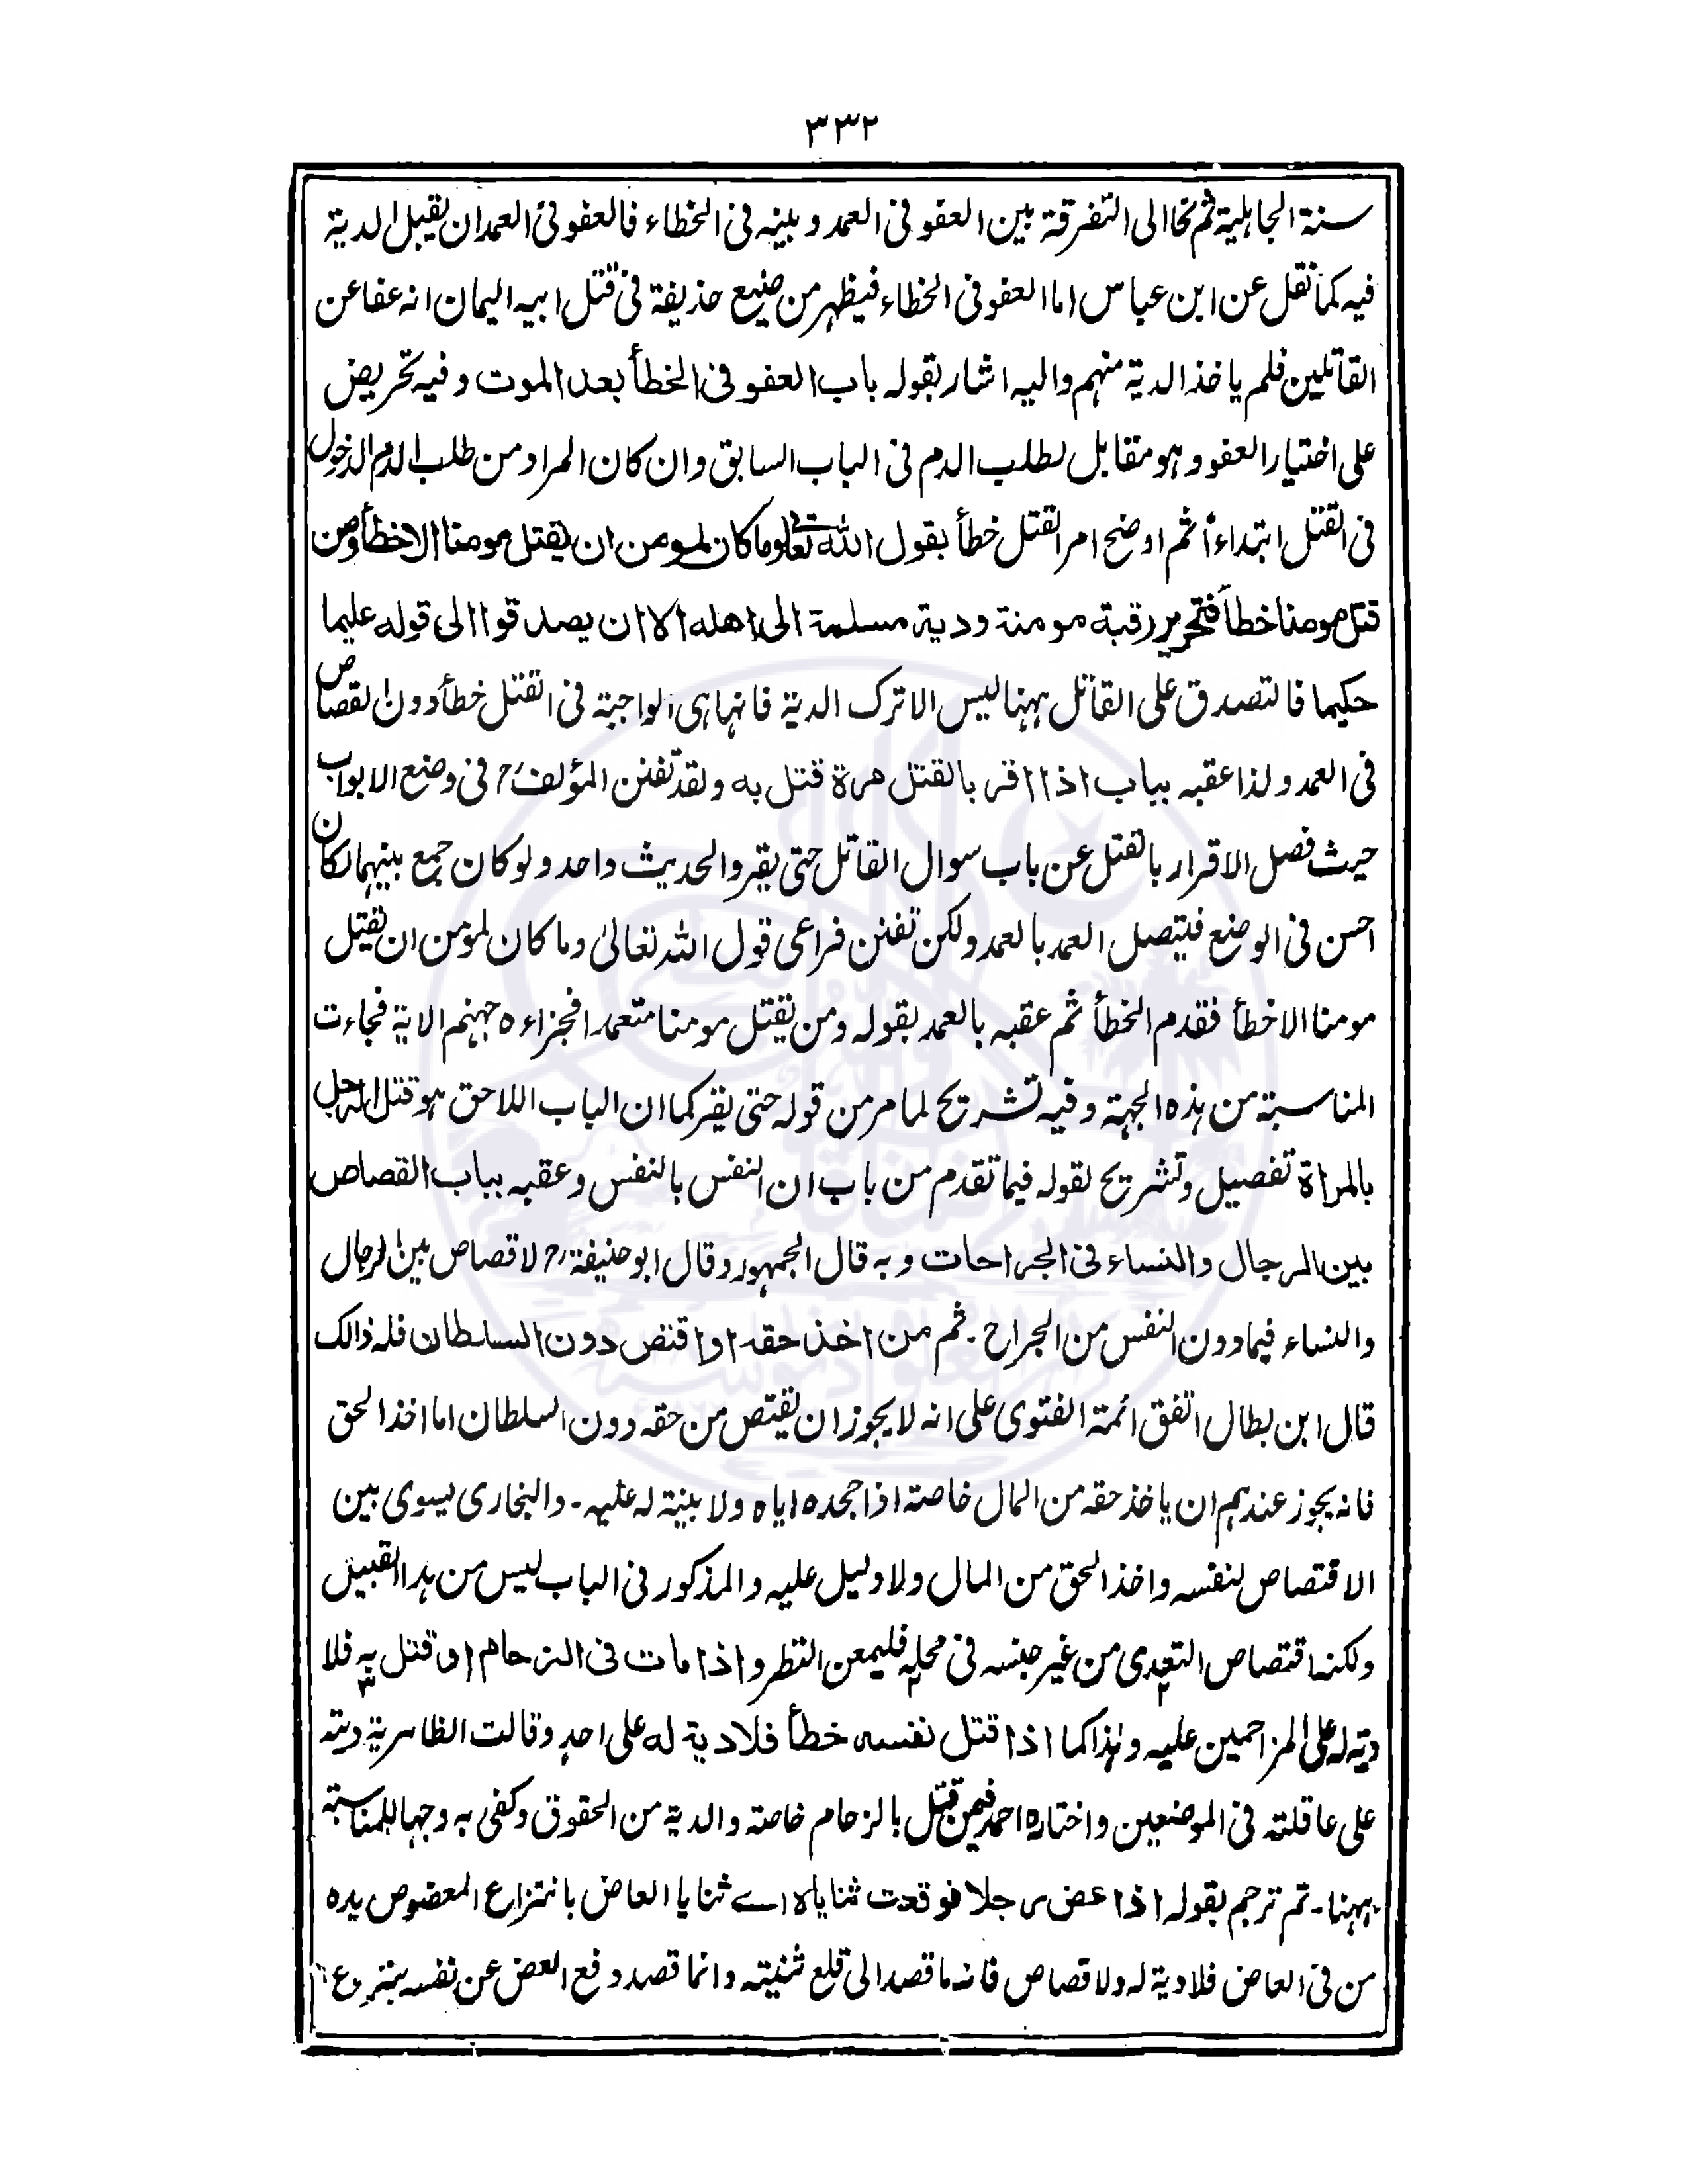 ٣٣٢
سنة الجاهلية ثم نحا الى التفرقة بين العفو فى العمد و بينه فى الخطاء فالعفو فى العمد ان يقبل الدية
فيه كما نقل عن ابن عباس اما العفو فى الخطاء فيظهر من صنيع حذيفة فى قتل ابيه اليمان انه عفا عن
القاتلين فلم ياخذ الدية منهم واليه اشار بقوله باب العفو فى الخطأ بعد الموت وفيه تحريض
على اختيار العفو وهو مقابل لطلب الدم فى الباب السابق وان كان المراد من طلب الدم الدخول
فى القتل ابتداءً ثم اوضح امر القتل خطأ بقول الله تعالى وما كان لمومن ان يقتل مومنا الا خطأ ومن
قتل مومنا خطأ فتحرير رقبة مومنة ودية مسلمة الى اهله الا ان يصدقوا الى قوله عليما
حكيما فالتصدق على القاتل ههنا ليس الا ترك الدية فانها هى الواجبة فى القتل خطأ دون القصاص
فى العمد ولذا عقبه بباب اذا اقر بالقتل مرة قتل به ولقد تفنن المؤلف رح فى وضع الابواب
حيث فصل الاقرار بالقتل عن باب سوال القاتل حتى يقر والحديث واحد ولو كان جمع بينهما لكان
احسن فى الوضع فيتصل العمد بالعمد ولكن تفنن فراعى قول الله تعالىٰ وما كان لمومن ان يقتل
مومنا الا خطأ فقدم الخطأ ثم عقبه بالعمد بقوله ومن يقتل مومنا متعمدا فجزاءه جهنم الاية فجاءت
المناسبة من هذه الجهة وفيه تشريح لما مر من قوله حتى يقر كما ان الباب اللاحق هو قتل الرجل
بالمراة تفصيل وتشريح لقوله فيما تقدم من باب ان النفس بالنفس وعقبه بباب القصاص
بين الرجال والنساء فى الجراحات وبه قال الجمهور وقال ابو حنيفة رح لا قصاص بين الرجال
والنساء فيما دون النفس من الجراح ۔ ثم من اخذ حقه او اقتص دون السلطان فله ذالك
قال ابن بطال اتفق ائمة الفتوى على انه لا يجوز ان يقتص من حقه دون السلطان اما اخذ الحق
فانه يجوز عندهم ان ياخذ حقه من المال خاصة اذا جحده اياه ولا بينة له عليه ۔ والبخارى يسوى بين
الاقتصاص لنفسه واخذ الحق من المال ولا دليل عليه والمذكور فى الباب ليس من هذا القبيل
ولكنه اقتصاص التعدى من غير جنسه فى محله فليمعن النظر واذا مات فى الزحام او قتل به فلا
دية له على المزاحمين عليه وهٰذا كما اذا قتل نفسه خطأ فلا دية له على احد وقالت الظاهرية ديته
على عاقلته فى الموضعين واختاره احمد فيمن قتل بالزحام خاصة والدية من الحقوق وكفى به وجها للمناسبة
ههنا ۔ ثم ترجم بقوله اذا عض رجلا فوقعت ثناياه اے ثنايا العاض بانتزاع المعضوض يده
من فى العاض فلا دية له ولا قصاص فانه ما قصد الى قلع ثنيته وانما قصد دفع العض عن نفسه بنزع